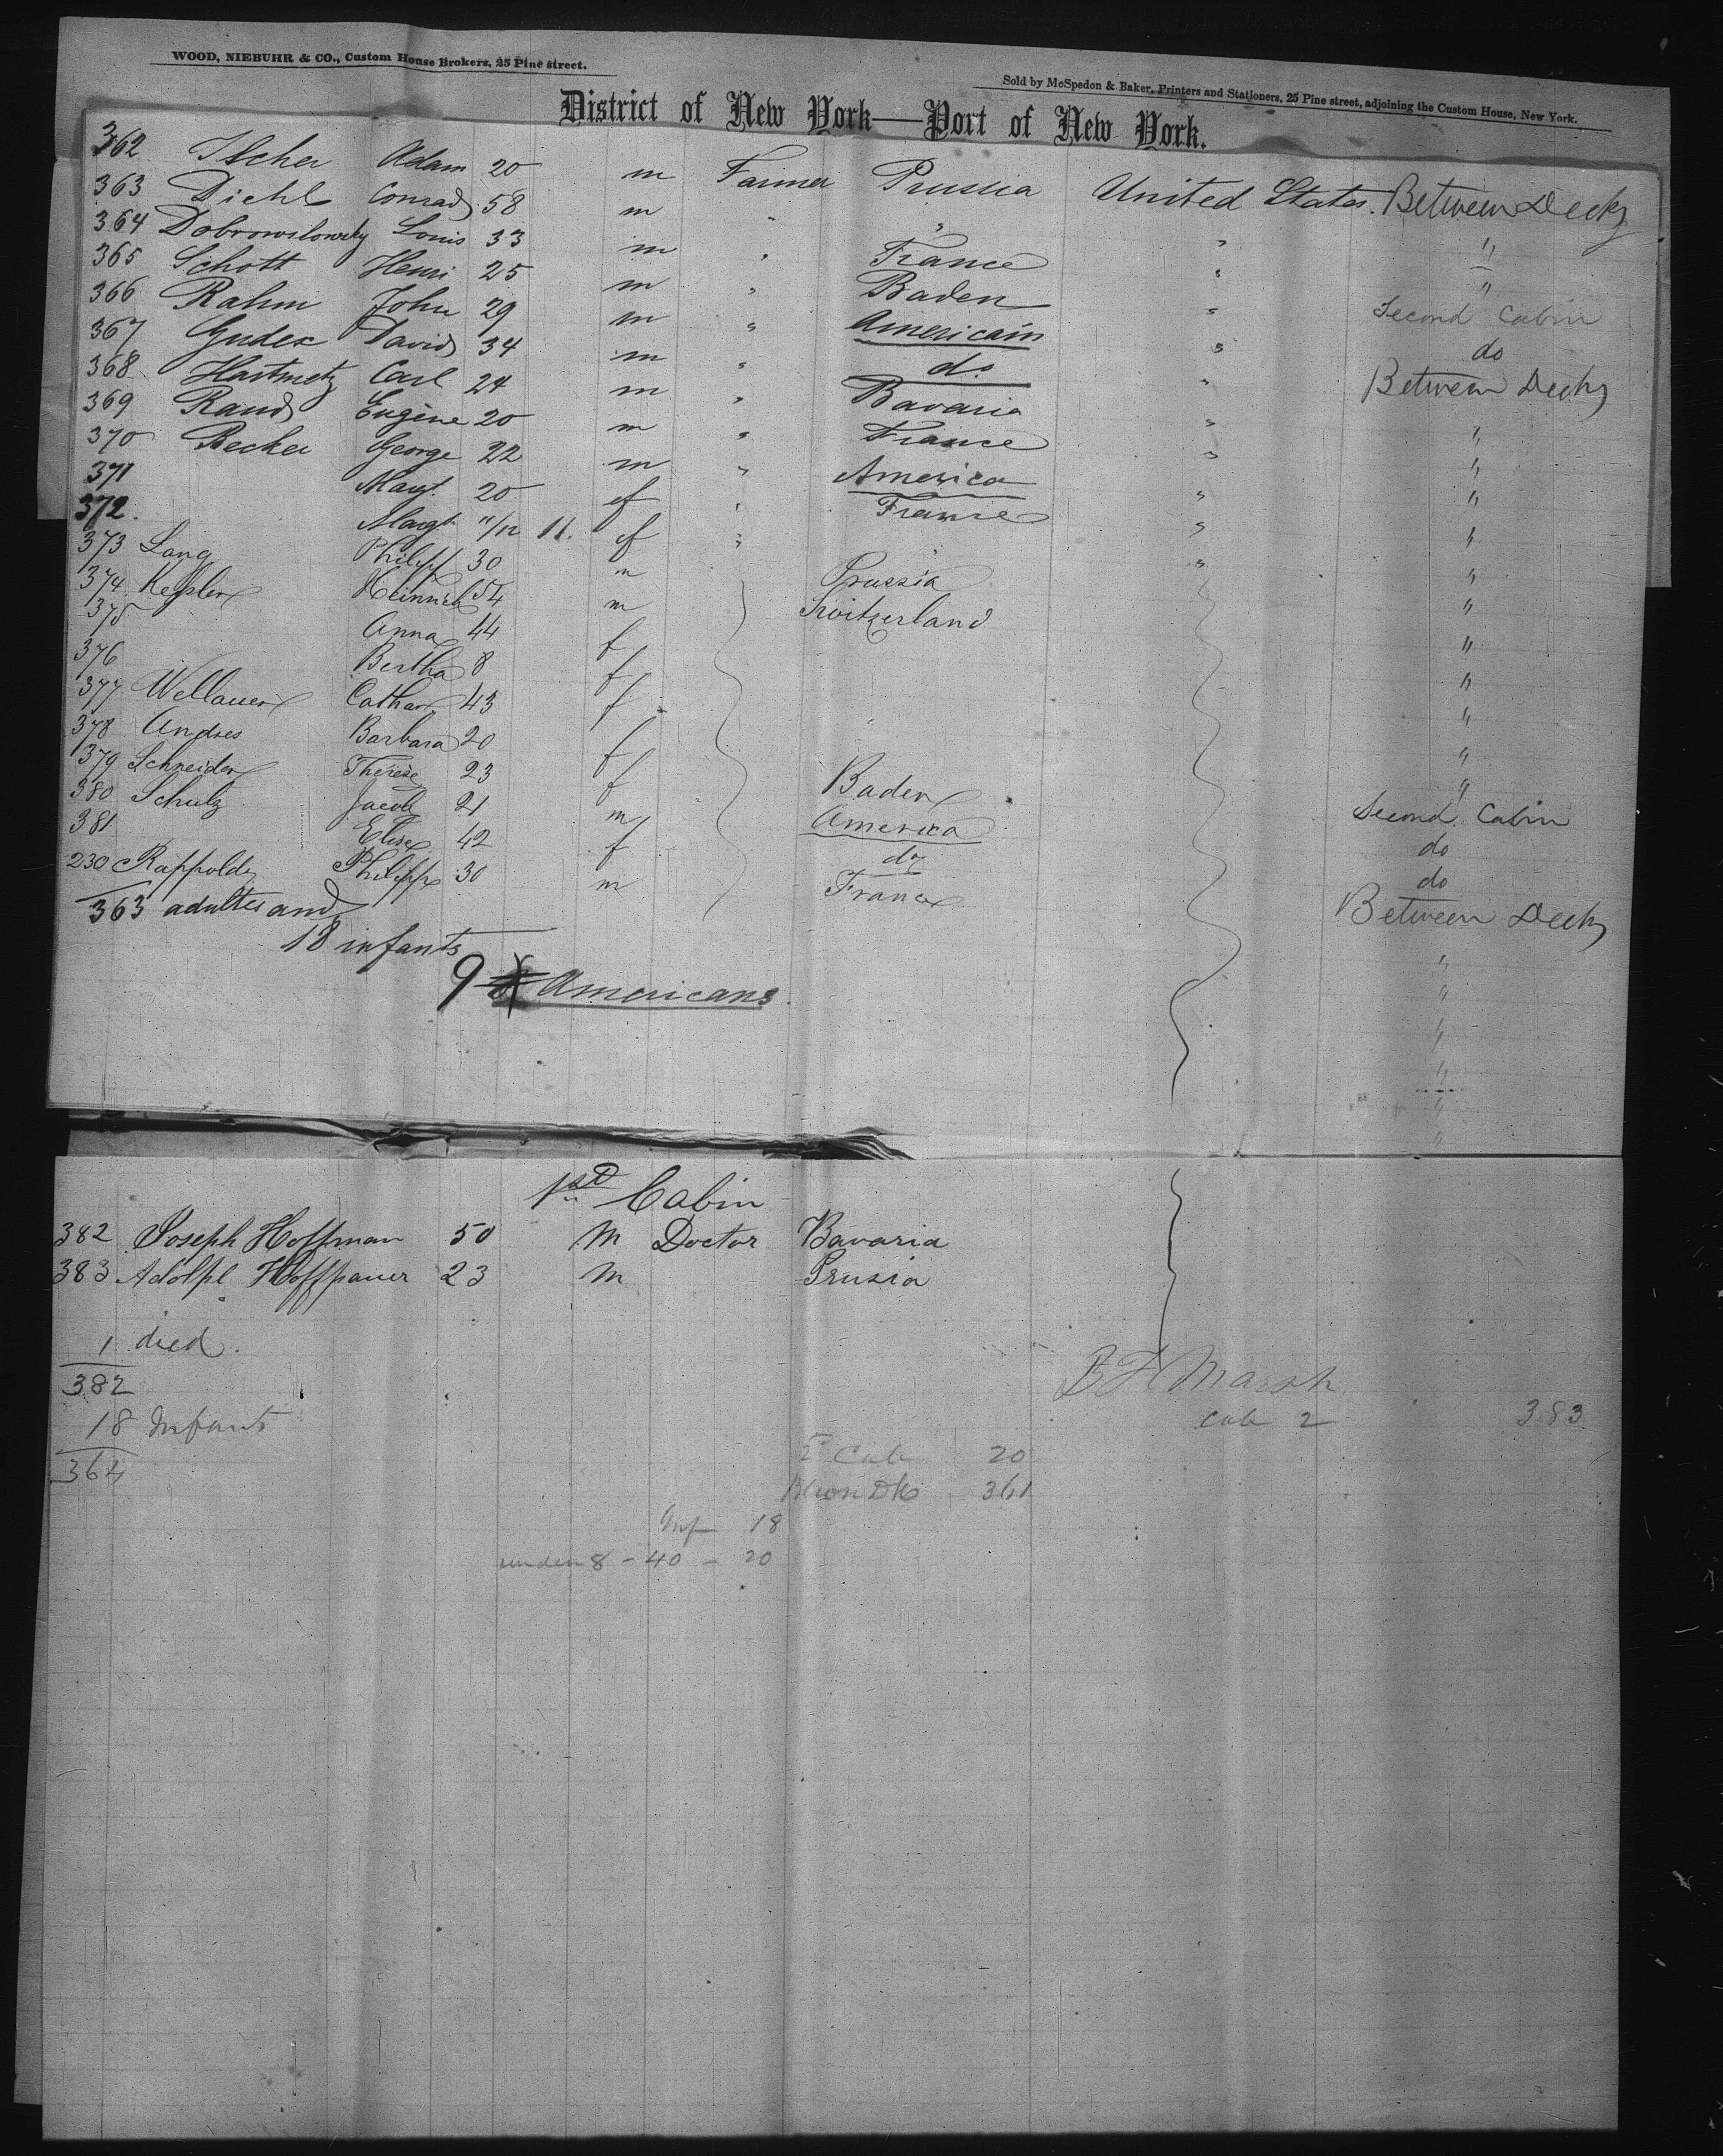 WOOD, NIEBUHR & CO., Custom House Brokers, 25 Pine street.
Sold by McSpedon & Baker, Printers and Stationers, 25 Pine street, adjoining the Custom House, New York.
District of New York—Port of New York.
362 Ischer Adam 20 m Farmer Prussia United States. Between Decks
363 Diehl Conrad 58 m " " " "
364 Dobrowslowsky Louis 33 m " France " "
365 Schott Henri 25 m " Baden " Second Cabin
366 Rahm John 29 m " Americain " do
367 Gudex David 34 m " do " Between Decks
368 Hartmetz Carl 24 m " Bavaria " "
369 Raud Eugène 20 m " France " "
370 Becker George 22 m " America " "
371 Margt. 20 f " France " "
372. Margt. 11/12 11. f " " " "
373 Lang Philipp 30 m Prussia "
374 Kessler Heinrich 54 m Switzerland "
375 Anna 44 f "
376 Bertha 8 f "
377 Wellauer Cathar 43 f "
378 Andres Barbara 20 f " "
379 Schneider Therese 23 f Baden Second Cabin
380 Schulz Jacob 21 m America do
381 Elise 42 f do do
230 Rappold Philippe 30 m France Between Decks
363 adultes and
18 infants
9 Americans.
1st Cabin
382 Joseph Hoffman 50 M Doctor Bavaria
383 Adolph Hoffpauer 23 M Prusia
1 died.
382
B F Marsh
18 Infants
Cab 2 383
364
2d Cab 20
Btwn Dks 361
Inf 18
under 8 - 40 - 20